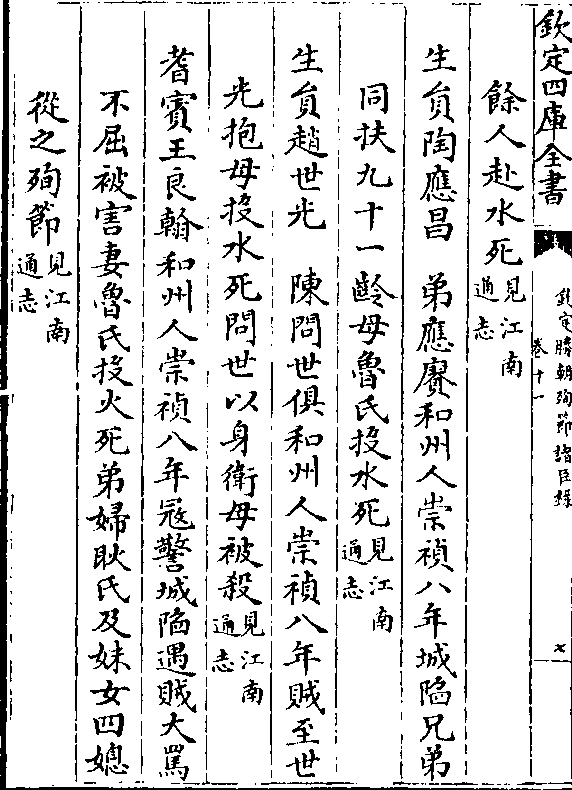 欽定四庫全書
欽定勝朝殉節諸臣錄
卷十一
七
餘人赴水死見江南通志
生員陶應昌　弟應賡和州人崇禎八年城陷兄弟
同扶九十一齡母魯氏投水死見江南通志
生員趙世光　陳問世俱和州人崇禎八年賊至世
光抱母投水死問世以身衛母被殺見江南通志
耆賓王良翰和州人崇禎八年寇警城陷遇賊大罵
不屈被害妻魯氏投火死弟婦耿氏及妹女四媳
從之殉節見江南通志